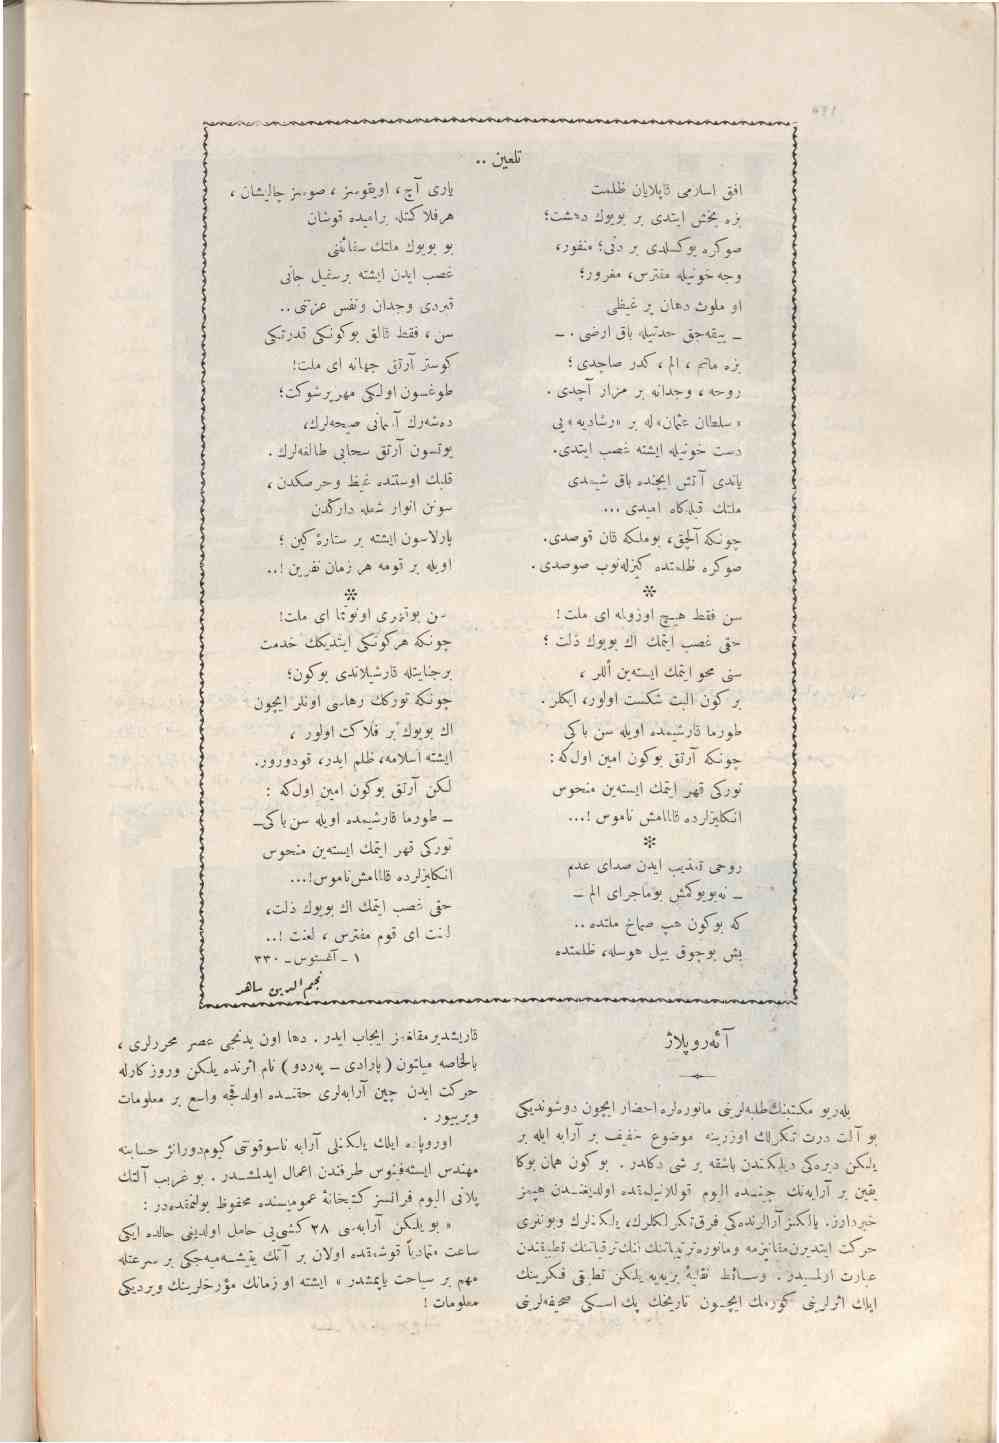 تلعين ..
افق اسلامى قاپلايان ظلمت
بزه بخش ايتدى بر بويوك دهشت؛
صوكره يوكسلدى بر دنى؛ منفور،
وجه خونيله مفترس، مغرور؛
او ملوث دهان پر غيظى
ـ ييقه‌جق حدتيله باق ارضى . ـ
بزه ماتم ، الم ، كدر صاچدى ؛
روحه ، وجدانه بر مزار آچدى .
« سلطان عثمان» له بر «رشاديه » يى
دست خونيله ايشته غصب ايتدى.
ياندى آتش ايچنده باق شيمدى
ملتك قبله‌كاه اميدى ...
چونكه آلچق، بوملكه قان قوصدى.
صوكره ظلمتده كيزله‌نوب صوصدى .
*
سن فقط هيچ اوزولمه اى ملت!
حقى غصب ايتمك اك بويوك ذلت ؛
سنى محو ايتمك ايسته‌ين أللر ،
بر كون البت شكست اولور، ايكلر .
طورما قارشيمده اويله سن باكى
چونكه آرتق بوكون امين اول‌كه :
توركى قهر ايتمك ايسته‌ين منحوس
انكليزلرده قالمامش ناموس !...
*
روحى تعذيب ايدن صداى عدم
ـ نه‌بويوكمش بوماجراى الم ـ
كه بوكون هپ صماخ ملتده ..
بش بوچوق ييل هوسله، ظلمتده
يارى آچ ، اويقوسز ، صوسز چاليشان ،
هرفلاكتله براميده قوشان
بو بويوك ملتك سفائننى
غصب ايدن ايشته برسفيل جانى
قيردى وجدان ونفس عزتنى ..
سن ، فقط قالق بوكونكى قدرتكى
كوستر آرتق جهانه اى ملت!
طوغسون اولكى مهر پرشوكت؛
ده‌شه‌رك آسمانى صيحه‌لرك،
يوتسون آرتق سحابى طالغه‌لرك .
قلبك اوستنده غيظ وحرصكدن ،
سونن انوار شعله داركدن
پارلاسون ايشته بر ستارۀ كين ؛
اويله بر قومه هر زمان نفرين !..
*
سن بوتزرى اونوتما اى ملت!
چونكه هركونكى ايتديكك خدمت
برجنايتله قارشيلاندى بوكون؛
چونكه توركك رهاسى اونلر ايچون
اك بويوك بر فلاكت اولور ،
ايشته اسلامه، ظلم ايدر، قودورور.
لكن آرتق بوكون امين اول‌كه :
ـ طورما قارشيمده اويله سن‌باكى ـ
توركى قهر ايتمك ايسته‌ين منحوس
انكليزلرده قالمامش‌ناموس!...
حقى غصب ايتمك اك بويوك ذلت،
لعنت اى قوم مفترس ، لعنت !..
١ ـ آغستوس ـ ٣٣٠
نجم الدين ساهر
آئه‌روپلاژ
بله‌ريو مكتبنك‌طلبه‌لرينى مانوره‌لره احضار ايچون دوشونديكى
بو آلت درت تكرلك اوزرينه موضوع خفيف بر آرابه ايله بر
يلكن ديره‌كى ديلبكندن باشقه بر شى دكلدر . بوكون همان بوكا
يقين بر آرابه‌نك چينده اليوم قوللانيلمقده اولديغندن هپمز
خبردارز. يالكز آرالرنده‌كى فرق‌تكرلكلرك، يلكنلرك وبونلرى
حركت ايتديرن‌مقانيزمه ومانوره‌ترتيباتنك اك‌ترقياتنك تطبيقندن
عبارت اولمسيدر . وسائط نقليۀ بريه‌يه يلكن تطبيقى فكرينك
ايلك اثرلرينى كورمك ايچون تاريخك پك اسكى صحيفه‌لرينى
قاريشديرمقلغمز ايجاب ايدر . دها اون يدنجى عصر محررلرى ،
بالخاصه ميلتون ( پارادى ـ په‌ردو ) نام اثرنده يلكن وروزكارله
حركت ايدن چين آرابه‌لرى حقنده اولدقجه واسع بر معلومات
ويرييور .
اوروپاده ايلك يلكنلى آرابه ناسوقونتى كيوم‌دورانژ حسابنه
مهندس ايسته‌فينوس طرفندن اعمال ايدلمشدر . بو غريب آلتك
پلانى اليوم فرانسز كتبخانۀ عموميسنده محفوظ بولنمقده‌در :
« بو يلكن آرابه‌سى ٢٨ كشى‌يى حامل اولديغى حالده ايكى
ساعت متمادياً قوشمقده اولان بر آتك يتيشه‌ميه‌جكى بر سرعتله
مهم بر سياحت ياپمشدر » ايشته او زمانك مؤرخلرينك ويرديكى
معلومات !